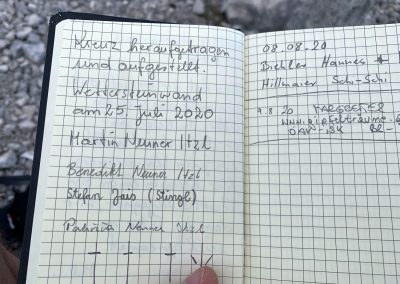 Kreuz heraufgetragen
und aufgestellt.
Wettersteinwand
am 25. Juli 2020
Martin Neuner Itzl
Benedikt Neuner Itzl
Stefan Jais (Stingl)
Patrizia Neuner Itzl
08.08.20
Biehler Hannes
Hillmaier
9.8 20
www.gipfelträume.
ÖAV-IBK